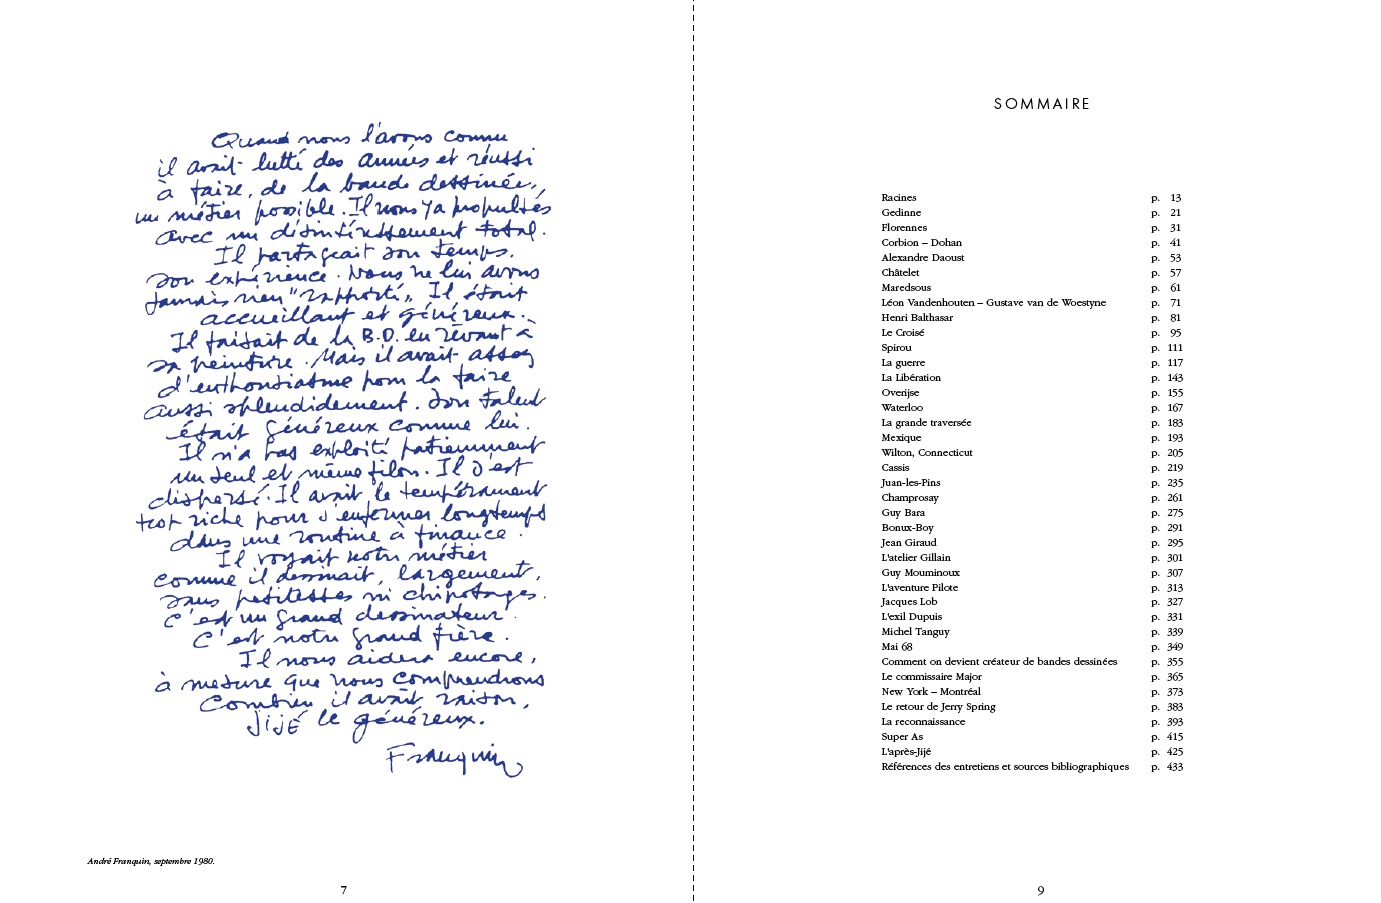 Quand nous l'avons connu
il avait lutté des années et réussi
à faire, de la bande dessinée,
un métier possible. Il nous y a propulsés
avec un désintéressement total.
Il partageait son temps,
son expérience. Nous ne lui avons
jamais rien "rapporté". Il était
accueillant et généreux.
Il faisait de la B.D. en rêvant à
sa peinture. Mais il avait assez
d'enthousiasme pour la faire
aussi splendidement. Son talent
était généreux comme lui.
Il n'a pas exploité patiemment
un seul et même filon. Il s'est
dispersé. Il avait le tempérament
trop riche pour s'enfermer longtemps
dans une routine à finance.
Il voyait notre métier
comme il dessinait, largement,
sans petitesses ni chipotages.
C'est un grand dessinateur.
C'est notre grand frère.
Il nous aidera encore,
à mesure que nous comprendrons
combien il avait raison,
Jijé le généreux.
Franquin
André Franquin, septembre 1980.
7
SOMMAIRE
Racines p. 13
Gedinne p. 21
Florennes p. 31
Corbion – Dohan p. 41
Alexandre Daoust p. 53
Châtelet p. 57
Maredsous p. 61
Léon Vandenhouten – Gustave van de Woestyne p. 71
Henri Balthasar p. 81
Le Croisé p. 95
Spirou p. 111
La guerre p. 117
La Libération p. 143
Overijse p. 155
Waterloo p. 167
La grande traversée p. 183
Mexique p. 193
Wilton, Connecticut p. 205
Cassis p. 219
Juan-les-Pins p. 235
Champrosay p. 261
Guy Bara p. 275
Bonux-Boy p. 291
Jean Giraud p. 295
L'atelier Gillain p. 301
Guy Mouminoux p. 307
L'aventure Pilote p. 313
Jacques Lob p. 327
L'exil Dupuis p. 331
Michel Tanguy p. 339
Mai 68 p. 349
Comment on devient créateur de bandes dessinées p. 355
Le commissaire Major p. 365
New York – Montréal p. 373
Le retour de Jerry Spring p. 383
La reconnaissance p. 393
Super As p. 415
L'après-Jijé p. 425
Références des entretiens et sources bibliographiques p. 433
9